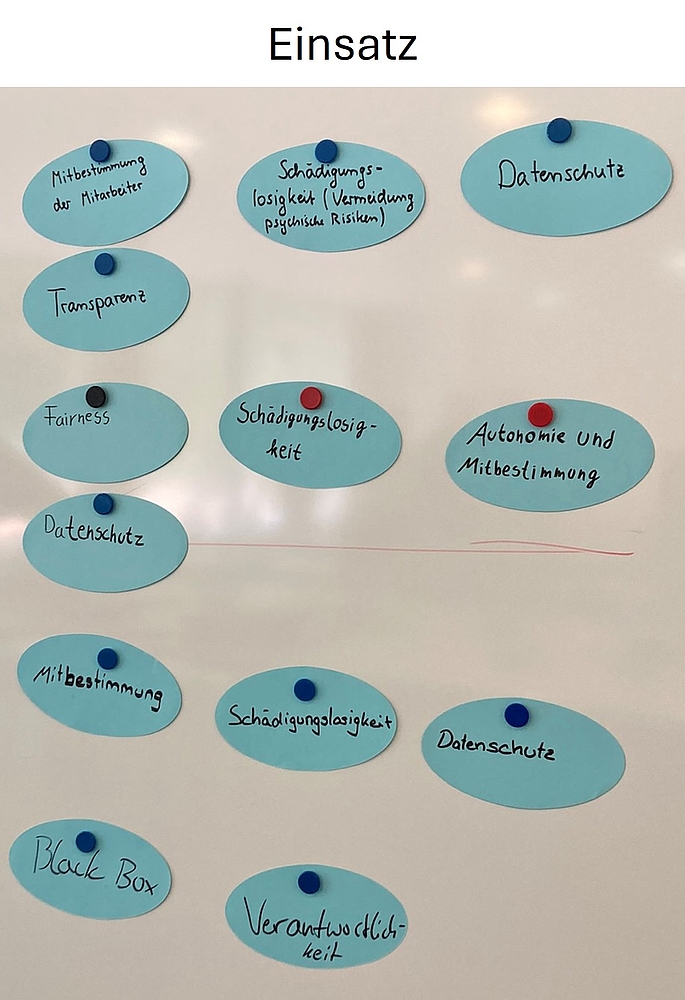 Einsatz
Mitbestimmung
der Mitarbeiter
Schädigungs-
losigkeit (Vermeidung
psychische Risiken)
Datenschutz
Transparenz
Fairness
Schädigungslosig-
keit
Autonomie und
Mitbestimmung
Datenschutz
Mitbestimmung
Schädigungslosigkeit
Datenschutz
Black Box
Verantwortlich-
keit